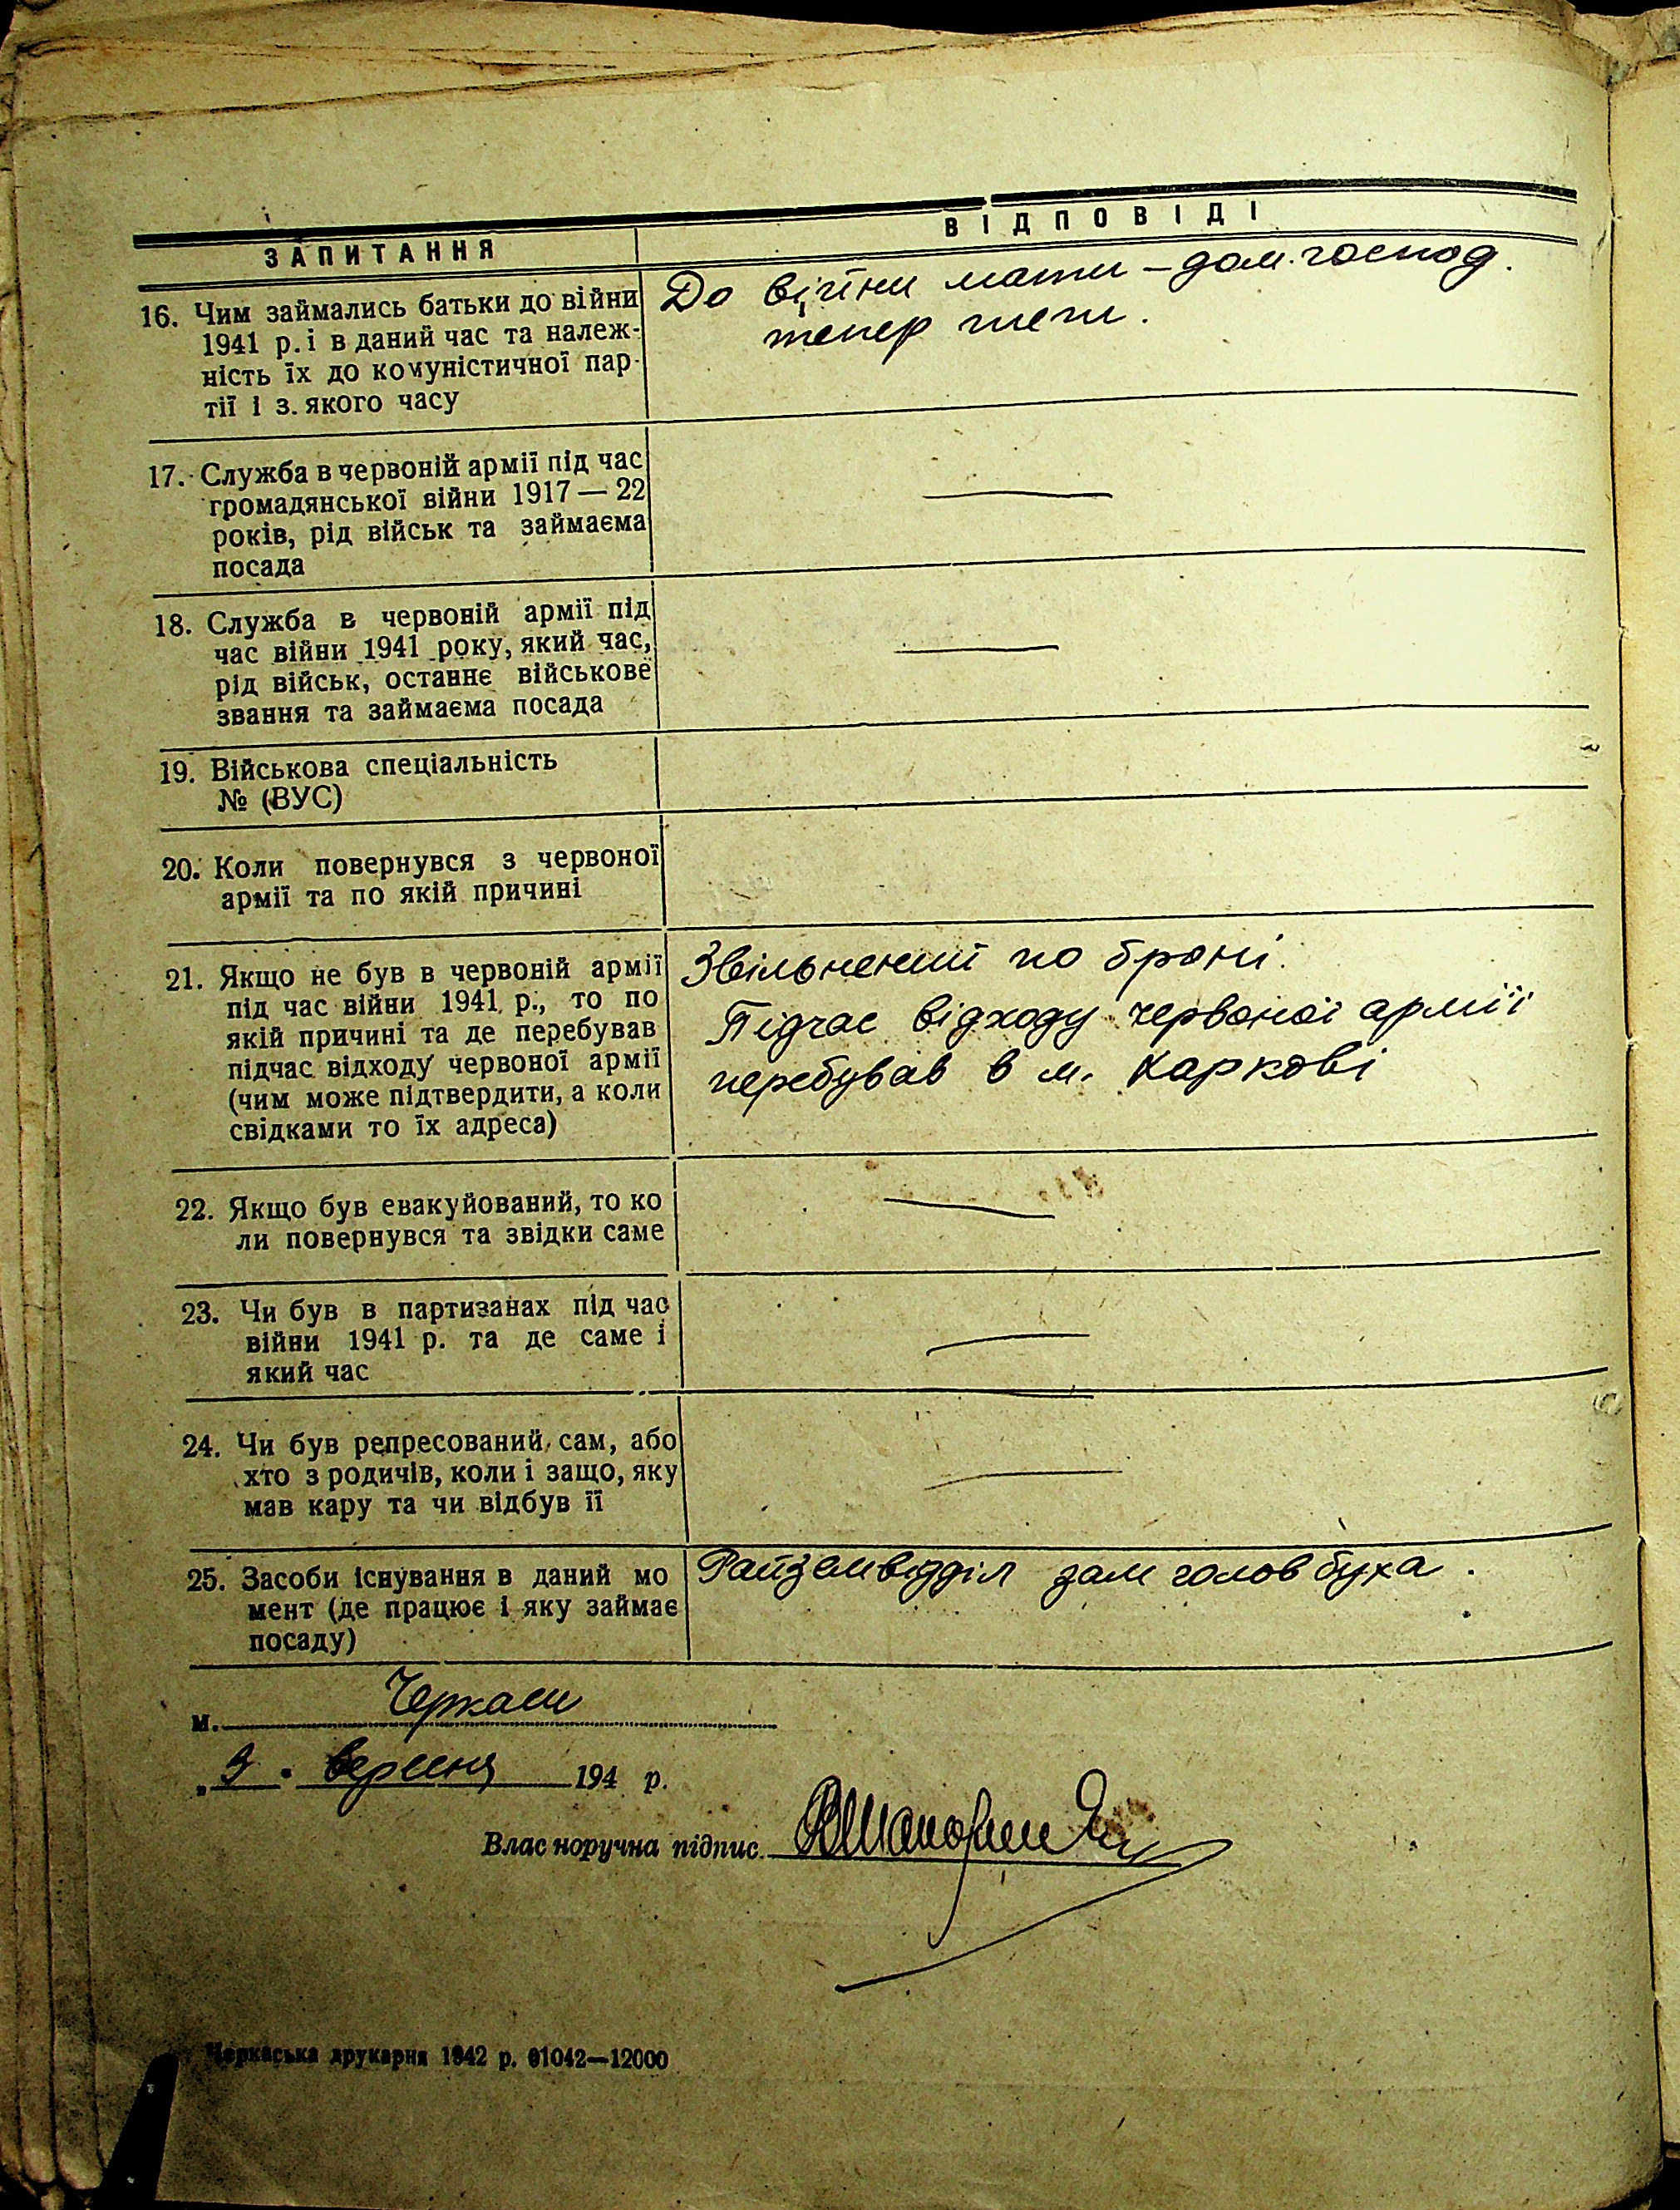 ЗАПИТАННЯ
ВІДПОВІДІ
16. Чим займались батьки до війни
1941 р. і в даний час та належ-
ність їх до комуністичної пар-
тії і з. якого часу
До війни мати – дом. господ.
тепер теж.
17. Служба в червоній армії під час
громадянської війни 1917 — 22
років, рід військ та займаєма
посада
—
18. Служба в червоній армії під
час війни 1941 року, який час,
рід військ, останнє військове
звання та займаєма посада
—
19. Військова спеціальність
№ (ВУС)
20. Коли повернувся з червоної
армії та по якій причині
21. Якщо не був в червоній армії
під час війни 1941 р., то по
якій причині та де перебував
підчас відходу червоної армії
(чим може підтвердити, а коли
свідками то їх адреса)
Звільнений по броні.
Підчас відходу червоної армії
перебував в м. Харкові
22. Якщо був евакуйований, то ко
ли повернувся та звідки саме
—
23. Чи був в партизанах під час
війни 1941 р. та де саме і
який час
—
24. Чи був репресований сам, або
хто з родичів, коли і защо, яку
мав кару та чи відбув її
—
25. Засоби існування в даний мо
мент (де працює і яку займає
посаду)
Райземвідділ зам головбуха.
м. Черкаси
„9. вересня 194 р.
Власноручна підпис.
Черкаська друкарня 1942 р. 01042—12000